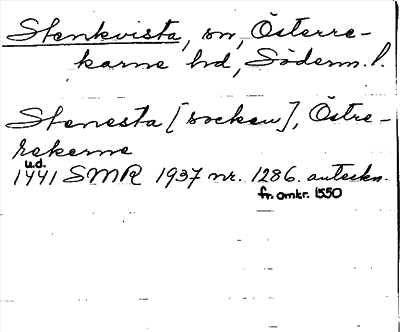 Stenkvista, sn, Österre-
karne hd, Söderm. l.
Stenesta [socken], Östre-
rekerne
u.d.
1441 SMR 1937 nr. 1286. anteckn.
fr. omkr. 1550